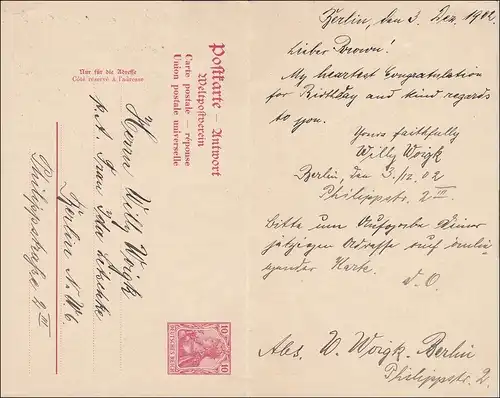 Postkarte – Antwort
Weltpostverein
Carte postale – réponse
Union postale universelle
Nur für die Adresse
Côté réservé à l'adresse
Herrn Willy Woigk
p. A. Frau Ida
Berlin N.W6.
Philippstraße 2 III
DEUTSCHES REICH
10 10
Berlin, den 3. Dez. 1902.
Lieber Brown!
My heartest Congratulation
for Birthday and kind regards
to you.
Yours faithfully
Willy Woigk
Berlin, den 3./12. 02
Philippstr. 2 III
Bitte um Aufgabe Deiner
jetzigen Adresse auf anlie-
gender Karte.
D. O.
Abs. W. Woigk. Berlin
Philippstr. 2.